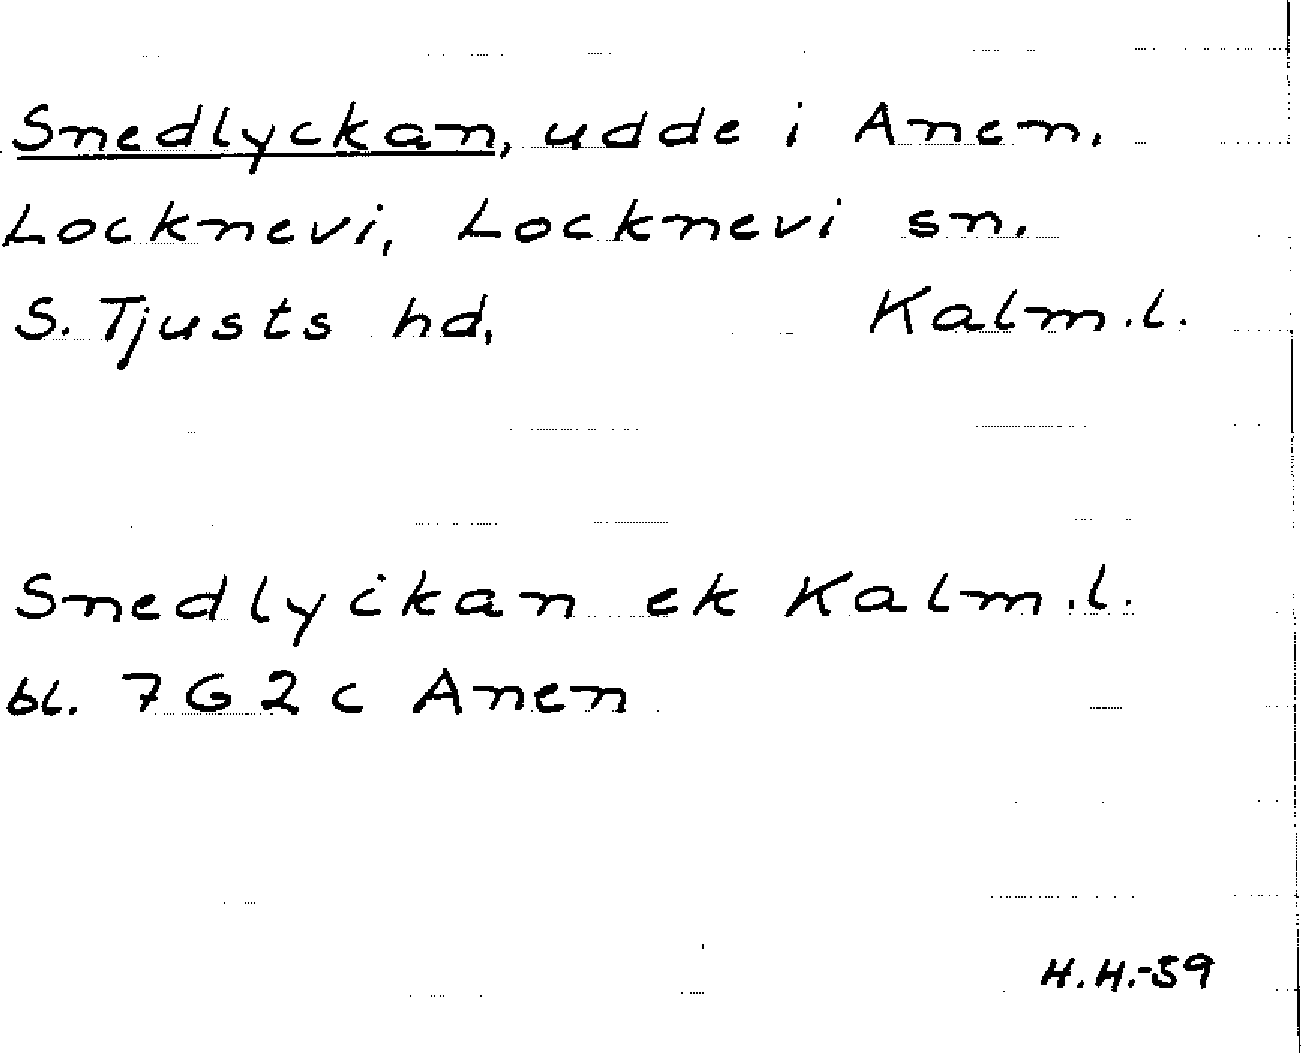 Snedlyckan, udde i Anen.
Locknevi, Locknevi sn.
S. Tjusts hd. Kalm.l.
Snedlyckan ek Kalm.l.
bl. 7 G 2 c Anen
H.H.-59